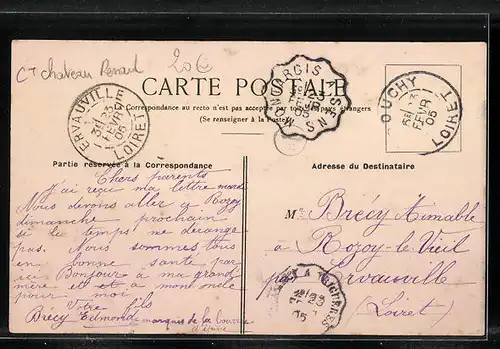 Ct chateau Renard
20€
CARTE POSTALE
La Correspondance au recto n'est pas acceptée par tous les pays étrangers
(Se renseigner à la Poste)
ERVAUVILLE
FEVR
05
LOIRET
MONTARGIS
SENS
05
DOUCHY
FEVR
05
LOIRET
Partie réservée à la Correspondance
Adresse du Destinataire
Chers parents
J'ai reçu ma lettre mardi
Nous devons aller à Rozoy
dimanche prochain
si le temps me dérange
pas. Nous sommes tous
en bonne santé par
ici Bonjour à ma grand
mère et et à mon oncle
pour moi
Votre fils
Brécy Edmond
marques de la bourre
M Brécy Aimable
à Rozoy-le-Vieil
par Ervauville
(Loiret)
A TRIGUERES
05